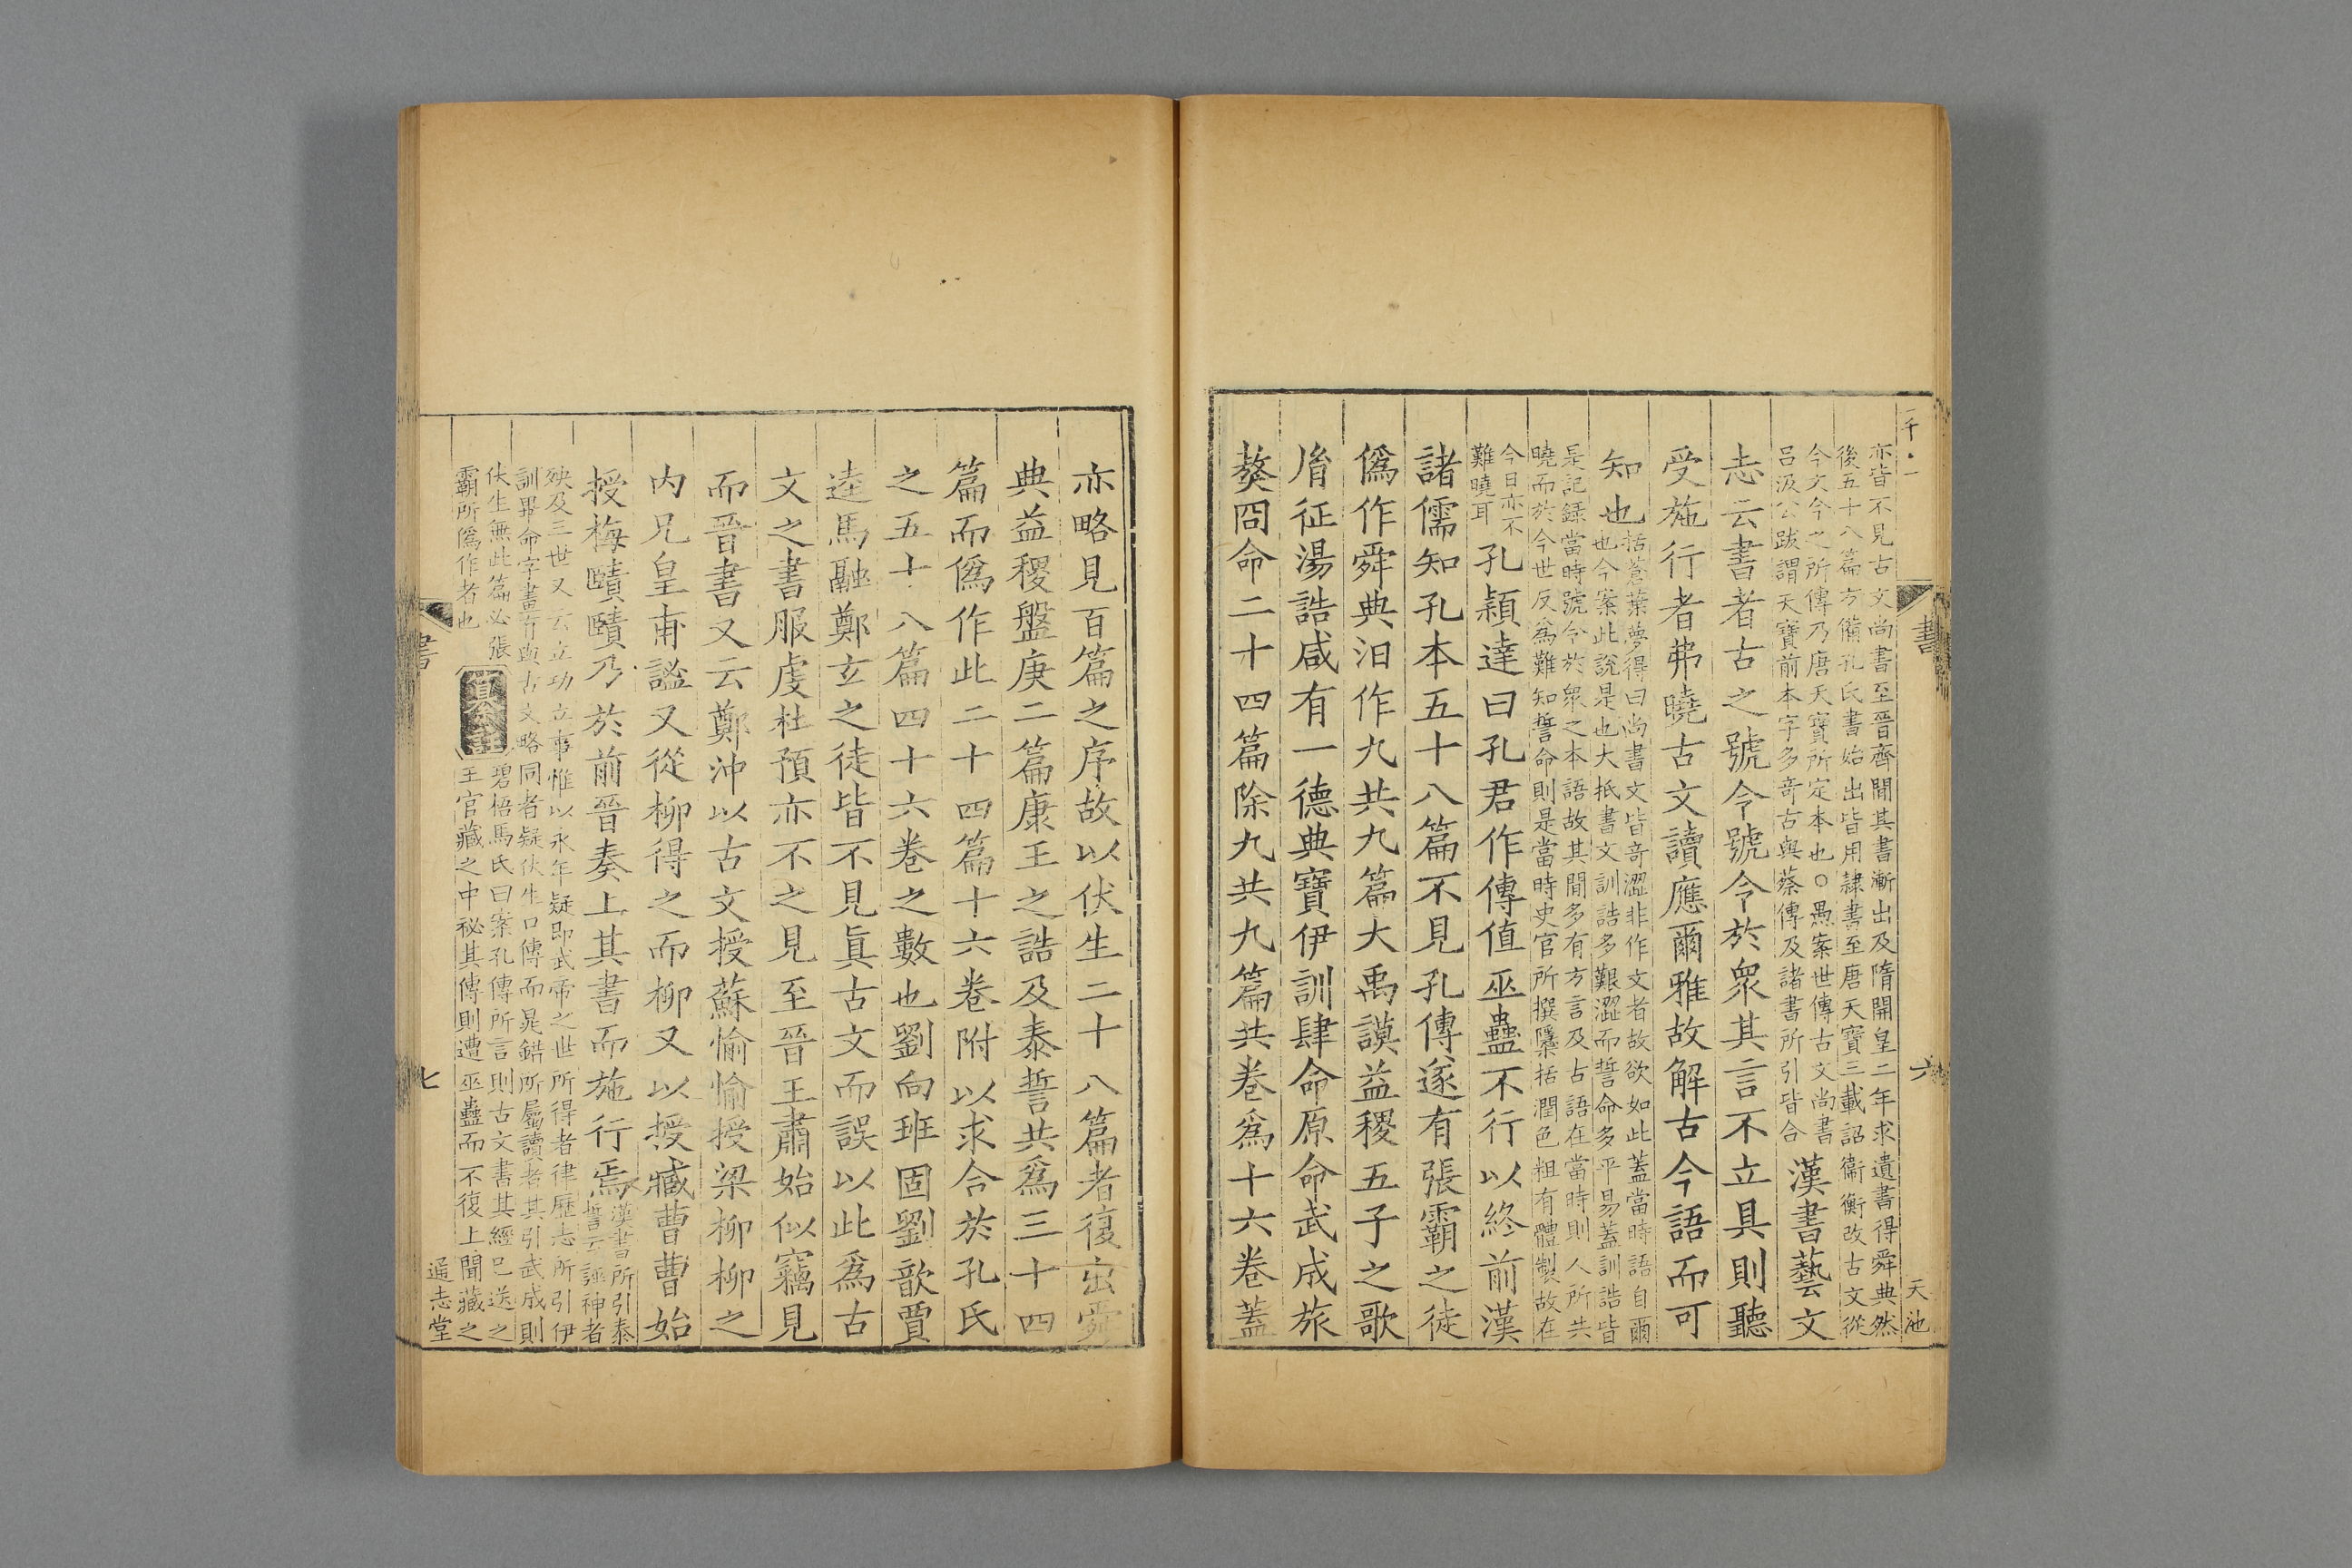 亦皆不見古文尚書至晉齊閒其書漸出及隋開皇二年求遺書得舜典然
後五十八篇方備孔氏書始出皆用隸書至唐天寶三載詔衞衡改古文從
今文今之所傳乃唐天寶所定本也○愚案世傳古文尚書
呂汲公跋謂天寶前本字多奇古與蔡傳及諸書所引皆合
漢書藝文
志云書者古之號令號令於衆其言不立具則聽
受施行者弗曉古文讀應爾雅故解古今語而可
知也
括蒼葉夢得曰尚書文皆奇澀非作文者故欲如此蓋當時語自爾
也今案此說是也大抵書文訓誥多艱澀而誓命多平易蓋訓誥皆
是記錄當時號令於衆之本語故其閒多有方言及古語在當時則人所共
曉而於今世反爲難知誓命則是當時史官所撰隱櫽括潤色粗有體製故在
今日亦不
難曉耳
孔穎達曰孔君作傳值巫蠱不行以終前漢
諸儒知孔本五十八篇不見孔傳遂有張霸之徒
僞作舜典汨作九共九篇大禹謨益稷五子之歌
胤征湯誥咸有一德典寶伊訓肆命原命武成旅
獒冏命二十四篇除九共九篇共卷爲十六卷蓋
六
天池
亦略見百篇之序故以伏生二十八篇者復出舜
典益稷盤庚二篇康王之誥及泰誓共爲三十四
篇而僞作此二十四篇十六卷附以求合於孔氏
之五十八篇四十六卷之數也劉向班固劉歆賈
逵馬融鄭玄之徒皆不見眞古文而誤以此爲古
文之書服虔杜預亦不之見至晉王肅始似竊見
而晉書又云鄭沖以古文授蘇愉愉授梁柳柳之
內兄皇甫謐又從柳得之而柳又以授臧曹曹始
授梅賾賾乃於前晉奏上其書而施行焉
漢書所引泰
誓云誣神者
殃及三世又云立功立事惟以永年疑即武帝之世所得者律歷志所引伊
訓畢命字畫有與古文略同者疑伏生口傳而晁錯所屬讀者其引武成則
伏生無此篇必張
霸所僞作者也
碧梧馬氏曰案孔傳所言則古文書其經已送之
王官藏之中祕其傳則遭巫蠱而不復上聞藏之
書
七
通志堂